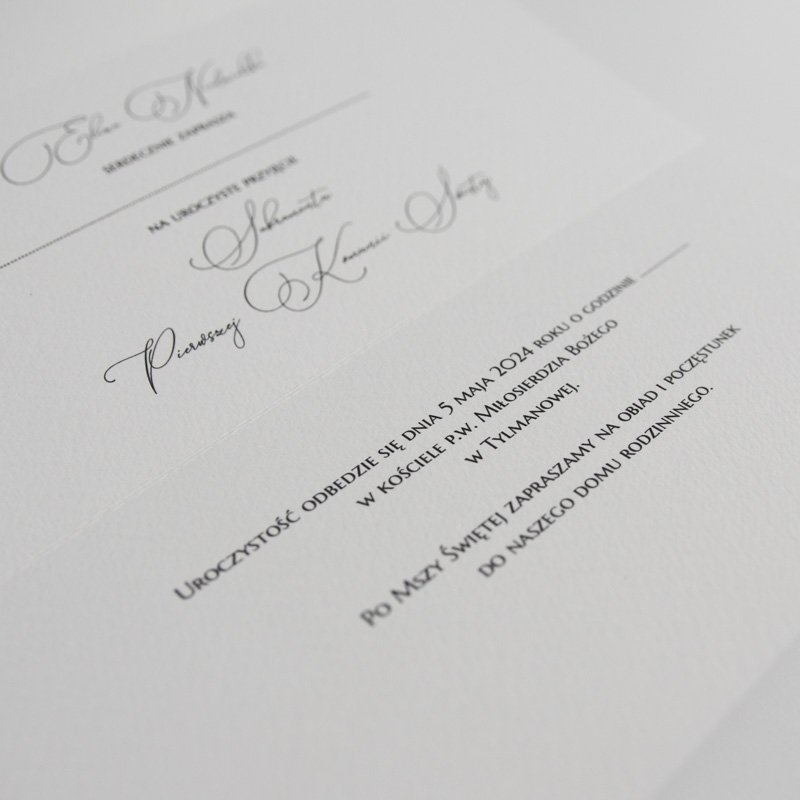 serdecznie zaprasza
na uroczyste przyjęcie
Sakramentu
Pierwszej Komunii Świętej
Uroczystość odbędzie się dnia 5 maja 2024 roku o godzinie
w kościele p.w. Miłosierdzia Bożego
w Tylmanowej.
Po Mszy Świętej zapraszamy na obiad i poczęstunek
do naszego domu rodzinnnego.